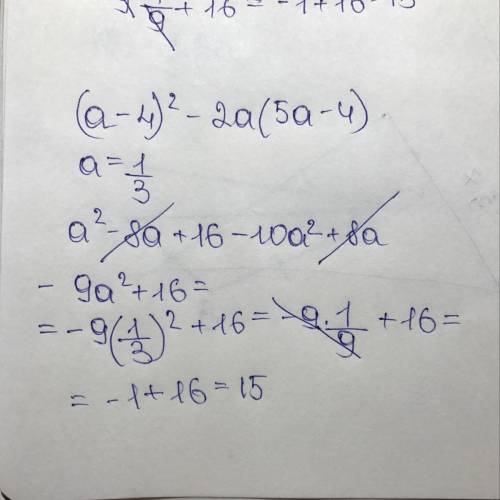 1/9 + 16 = -1 + 16 = 15
(a - 4)² - 2a(5a - 4)
a = 1/3
a² - 8a + 16 - 10a² + 8a
- 9a² + 16 =
= -9(1/3)² + 16 = -9 · 1/9 + 16 =
= -1 + 16 = 15